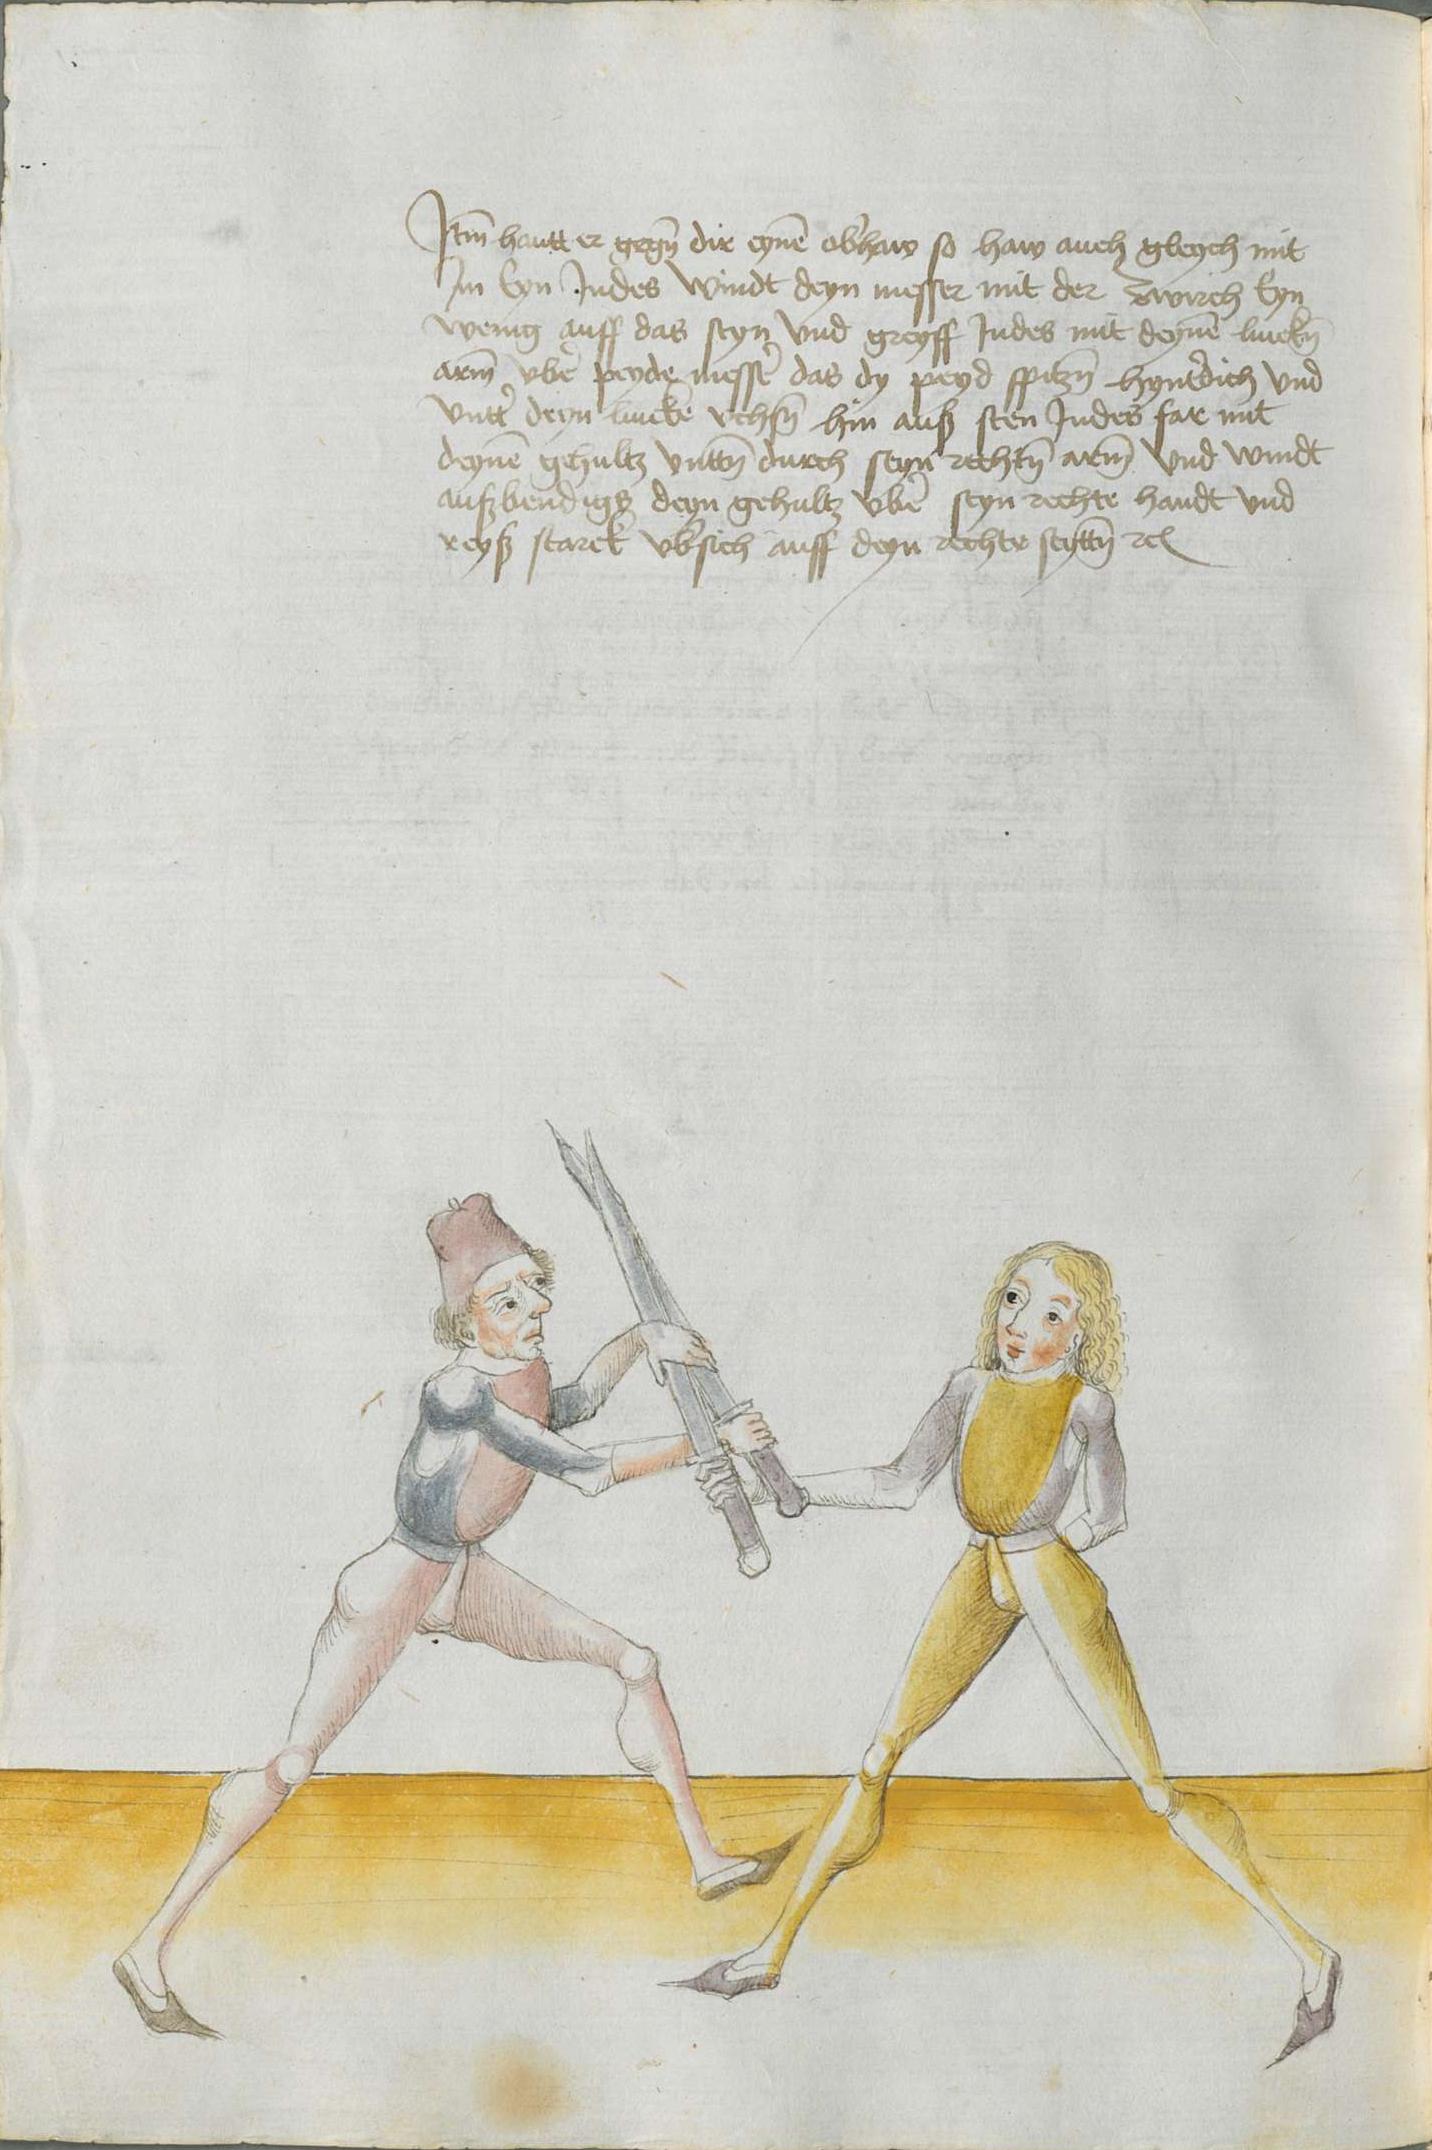 Itm̃ hautt er gegñ dir eynẽ ob̾haw so haw auch gleych mit
Im Eyn Indes Windt deyn messer mit der zwirch Eyn
wenig auff das seyn Vnd greyff Indes mit deynẽ linckñ
arm̃ vbe᷑ peyde messe᷑ das dy peyd spitzñ hynt̾dich Vnd
Vntt̾ deyn lincke vchsñ hin auß sten Indes far mit
deynẽ gehultz vnttñ durch seyn rechtñ arm̃ Vnd windt
außbendigs deyn gehultz vbe᷑ seyn rechte handt Vnd
reyß starck vb̾sich auff deyn rechte seyttñ rc